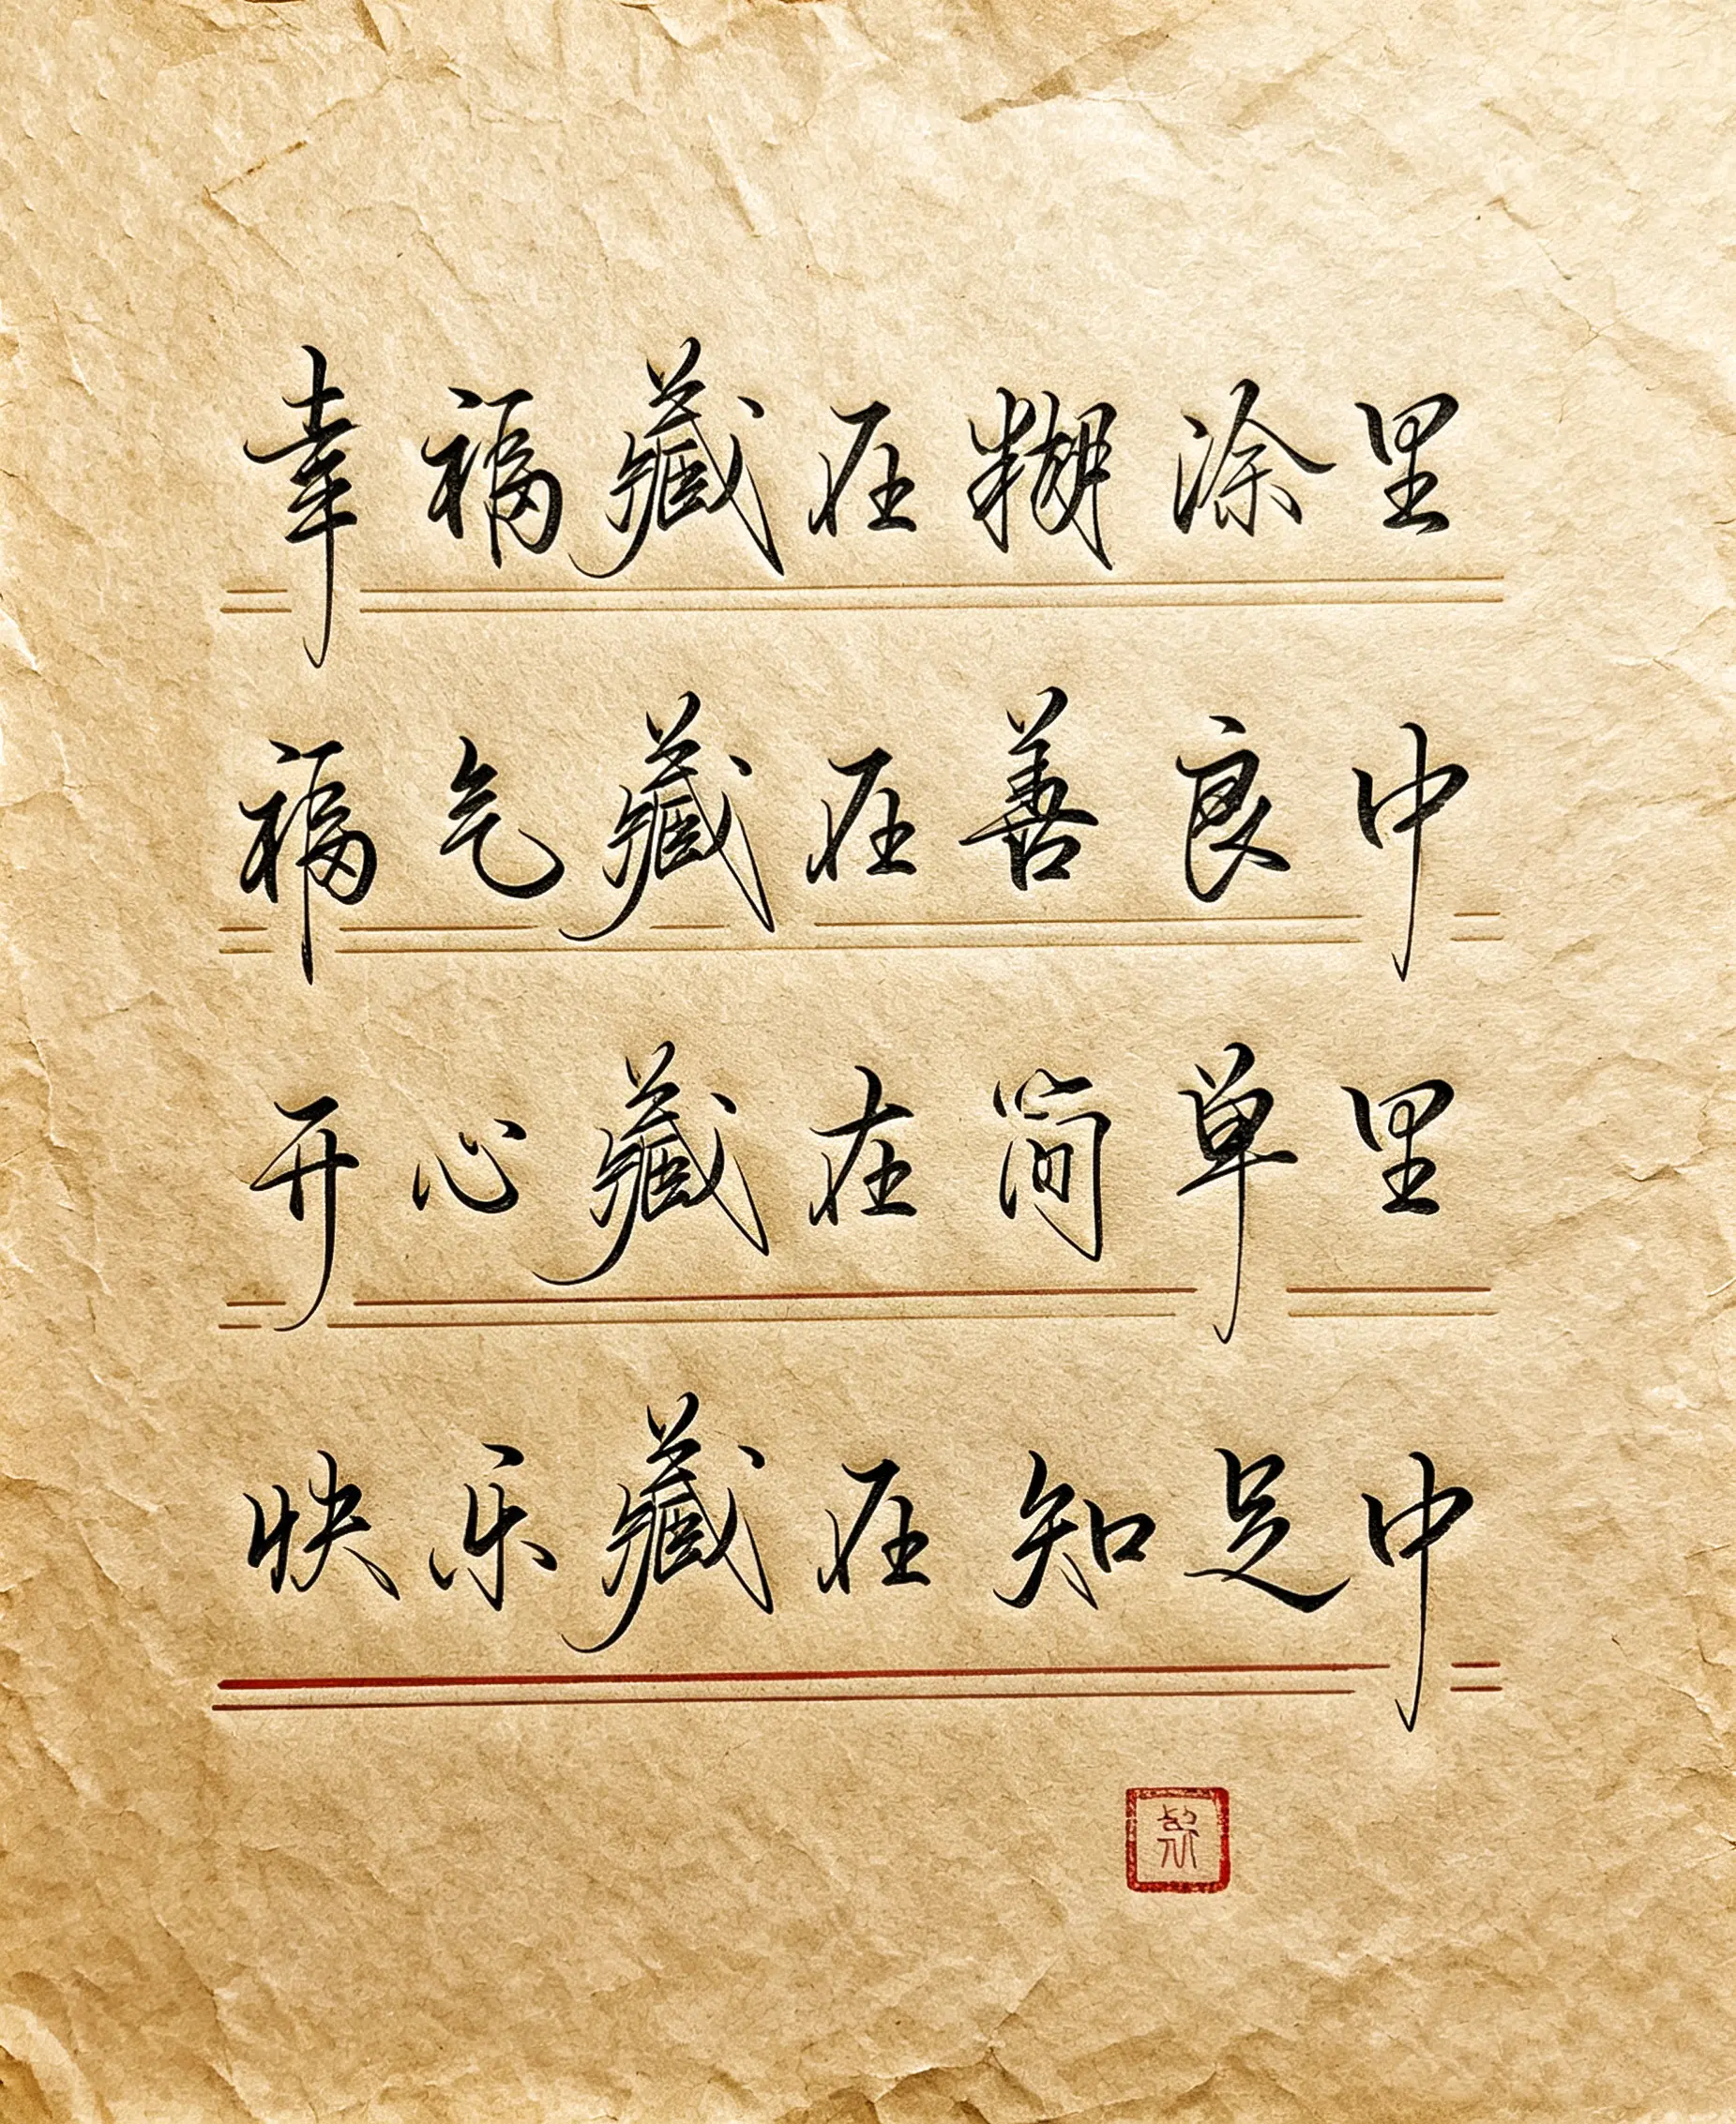 幸福藏在糊涂里
福气藏在善良中
开心藏在简单里
快乐藏在知足中